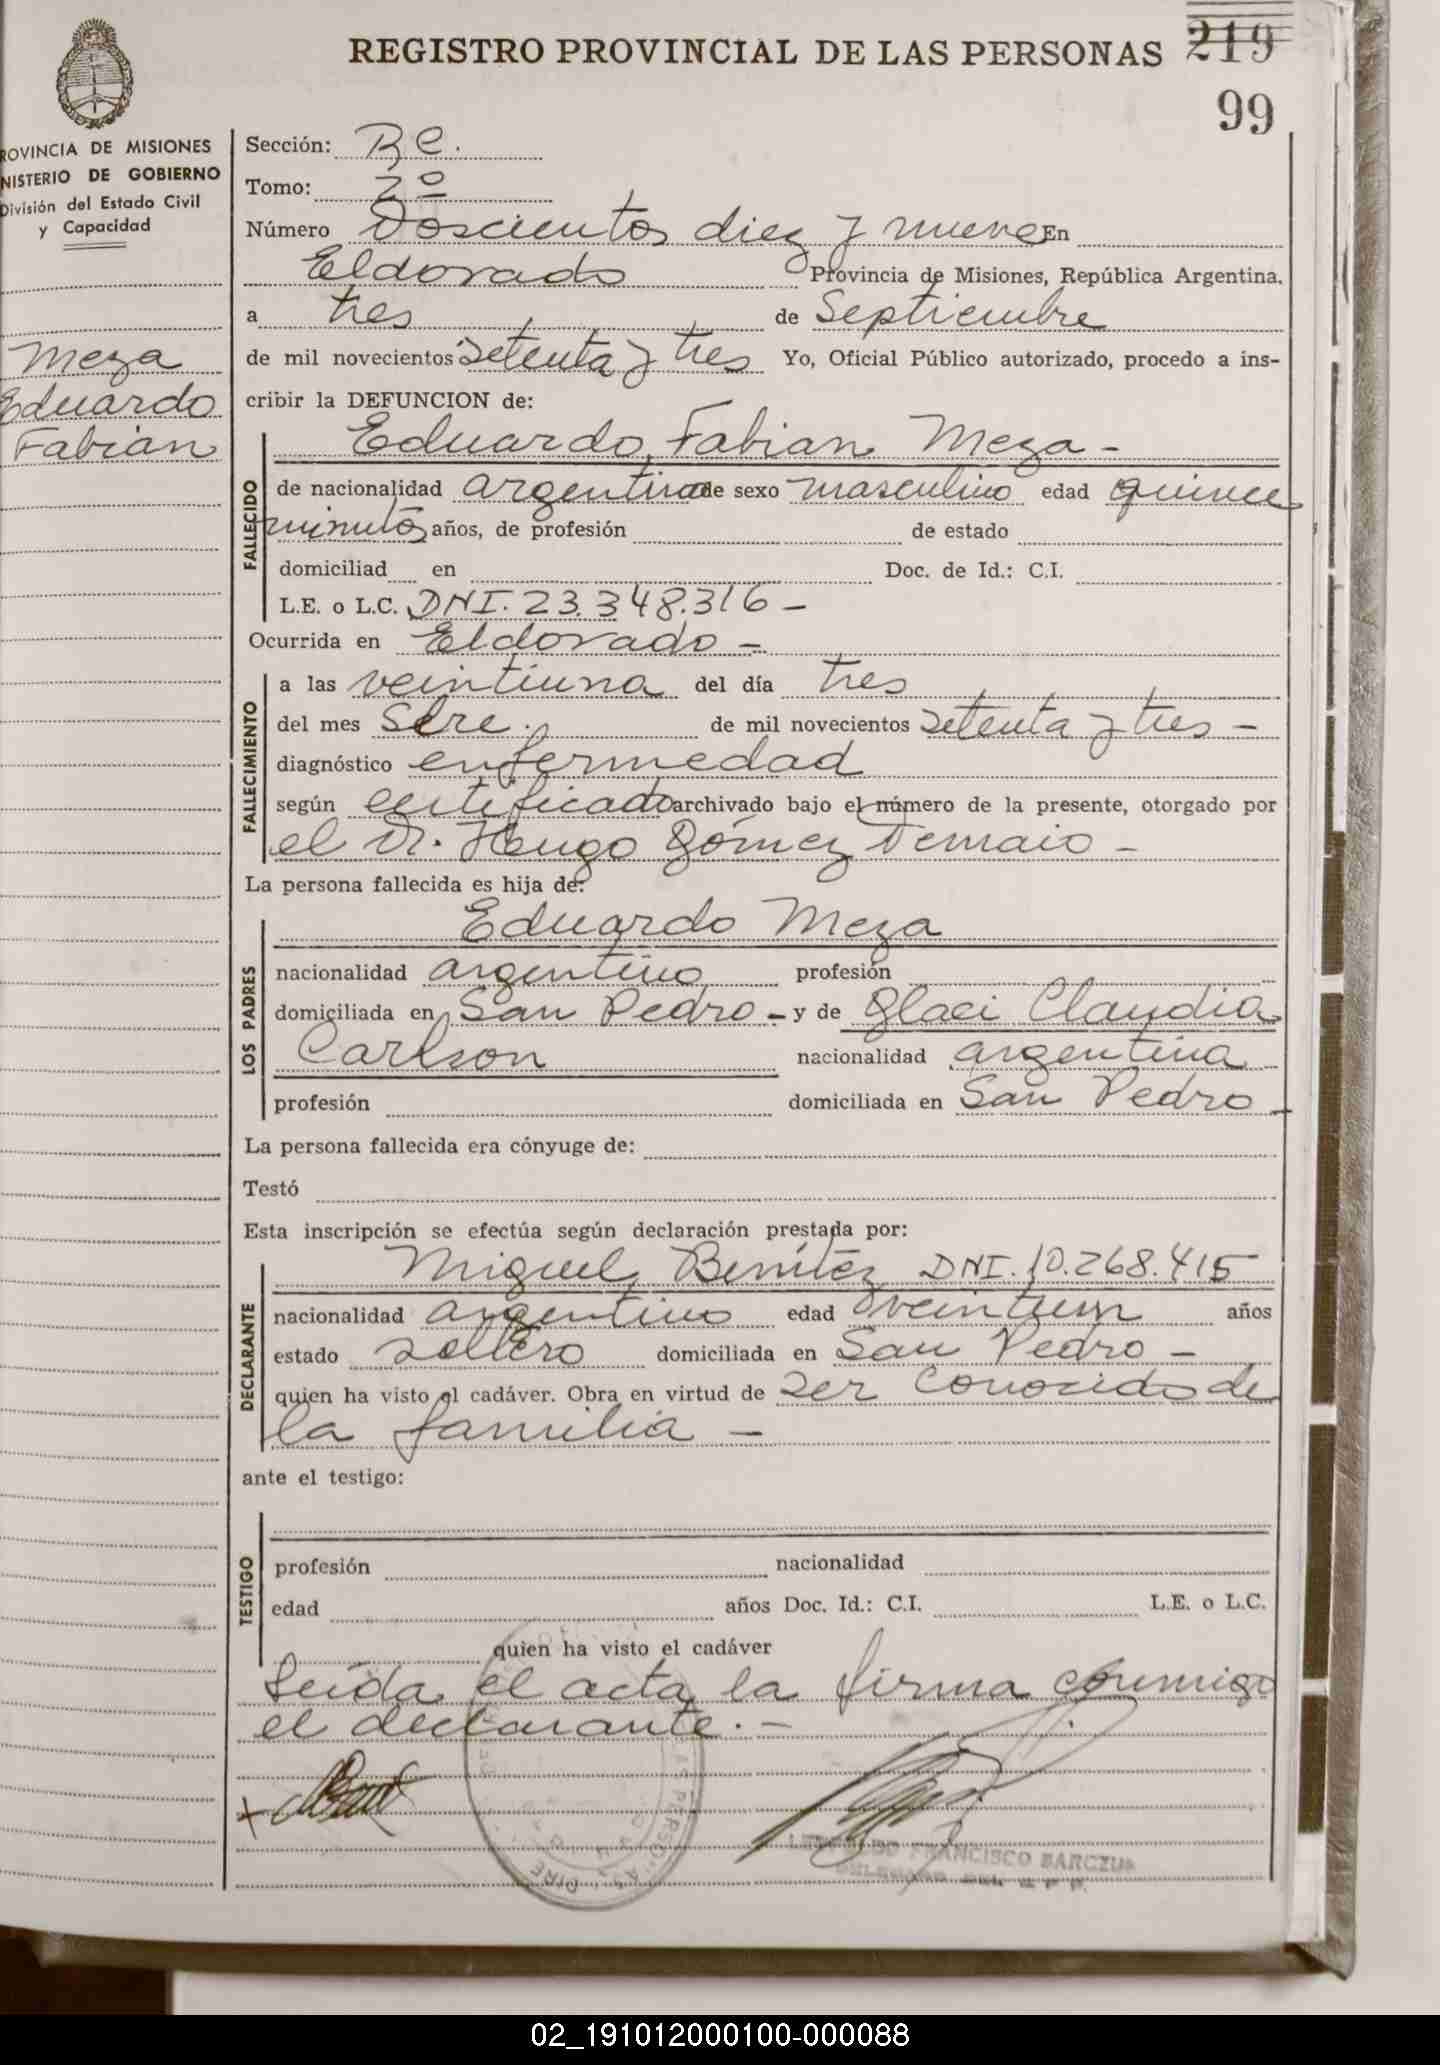 REGISTRO PROVINCIAL DE LAS PERSONAS 219
99
ROVINCIA DE MISIONES
NISTERIO DE GOBIERNO
División del Estado Civil
y Capacidad
Meza
Eduardo
Fabian
Sección:
Tomo: 2º
Número Doscientos diez y nueve En
Eldorado Provincia de Misiones, República Argentina.
a tres de Septiembre
de mil novecientos setenta y tres Yo, Oficial Público autorizado, procedo a ins-
cribir la DEFUNCION de:
Eduardo Fabian Meza -
FALLECIDO
de nacionalidad argentina de sexo masculino edad quince
minutos años, de profesión de estado
domiciliad en Doc. de Id.: C.I.
L.E. o L.C. DNI. 23.348.316 -
Ocurrida en Eldorado -
FALLECIMIENTO
a las veintiuna del día tres
del mes Sbre. de mil novecientos setenta y tres -
diagnóstico enfermedad
según certificado archivado bajo el número de la presente, otorgado por
el Dr. Hugo Gómez Demaio -
La persona fallecida es hija de:
LOS PADRES
Eduardo Meza
nacionalidad argentino profesión
domiciliada en San Pedro - y de Glaci Claudia
Carlson nacionalidad argentina
profesión domiciliada en San Pedro -
La persona fallecida era cónyuge de:
Testó
Esta inscripción se efectúa según declaración prestada por:
DECLARANTE
Miguel Benítez DNI. 10.268.415
nacionalidad argentino edad veintiun años
estado soltero domiciliada en San Pedro -
quien ha visto el cadáver. Obra en virtud de ser conocido de
la familia -
ante el testigo:
TESTIGO
profesión nacionalidad
edad años Doc. Id.: C.I. L.E. o L.C.
quien ha visto el cadáver
Leída el acta la firma conmigo
el declarante. -
FRANCISCO BARCZUK
02_191012000100-000088